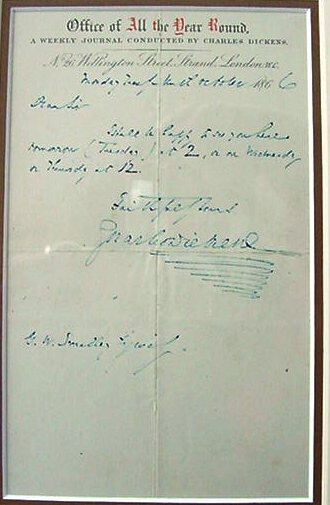 Office of All the Year Round.
A WEEKLY JOURNAL CONDUCTED BY CHARLES DICKENS.
No. 26, Wellington Street, Strand, London, W.C.
Monday Twenty Ninth October 1866
Dear Sir
I shall be happy to see you here
tomorrow (Tuesday) at 2, or on Wednesday
or Thursday at 12.
Faithfully Yours
Charles Dickens
G. W. Smalley Esquire.